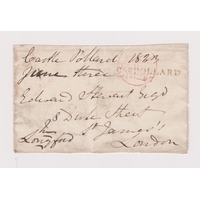 Castle Pollard 1823
June three
C.POLLARD
Edward Stewart Esqr
8 Duke Street
St James's
Longford
London